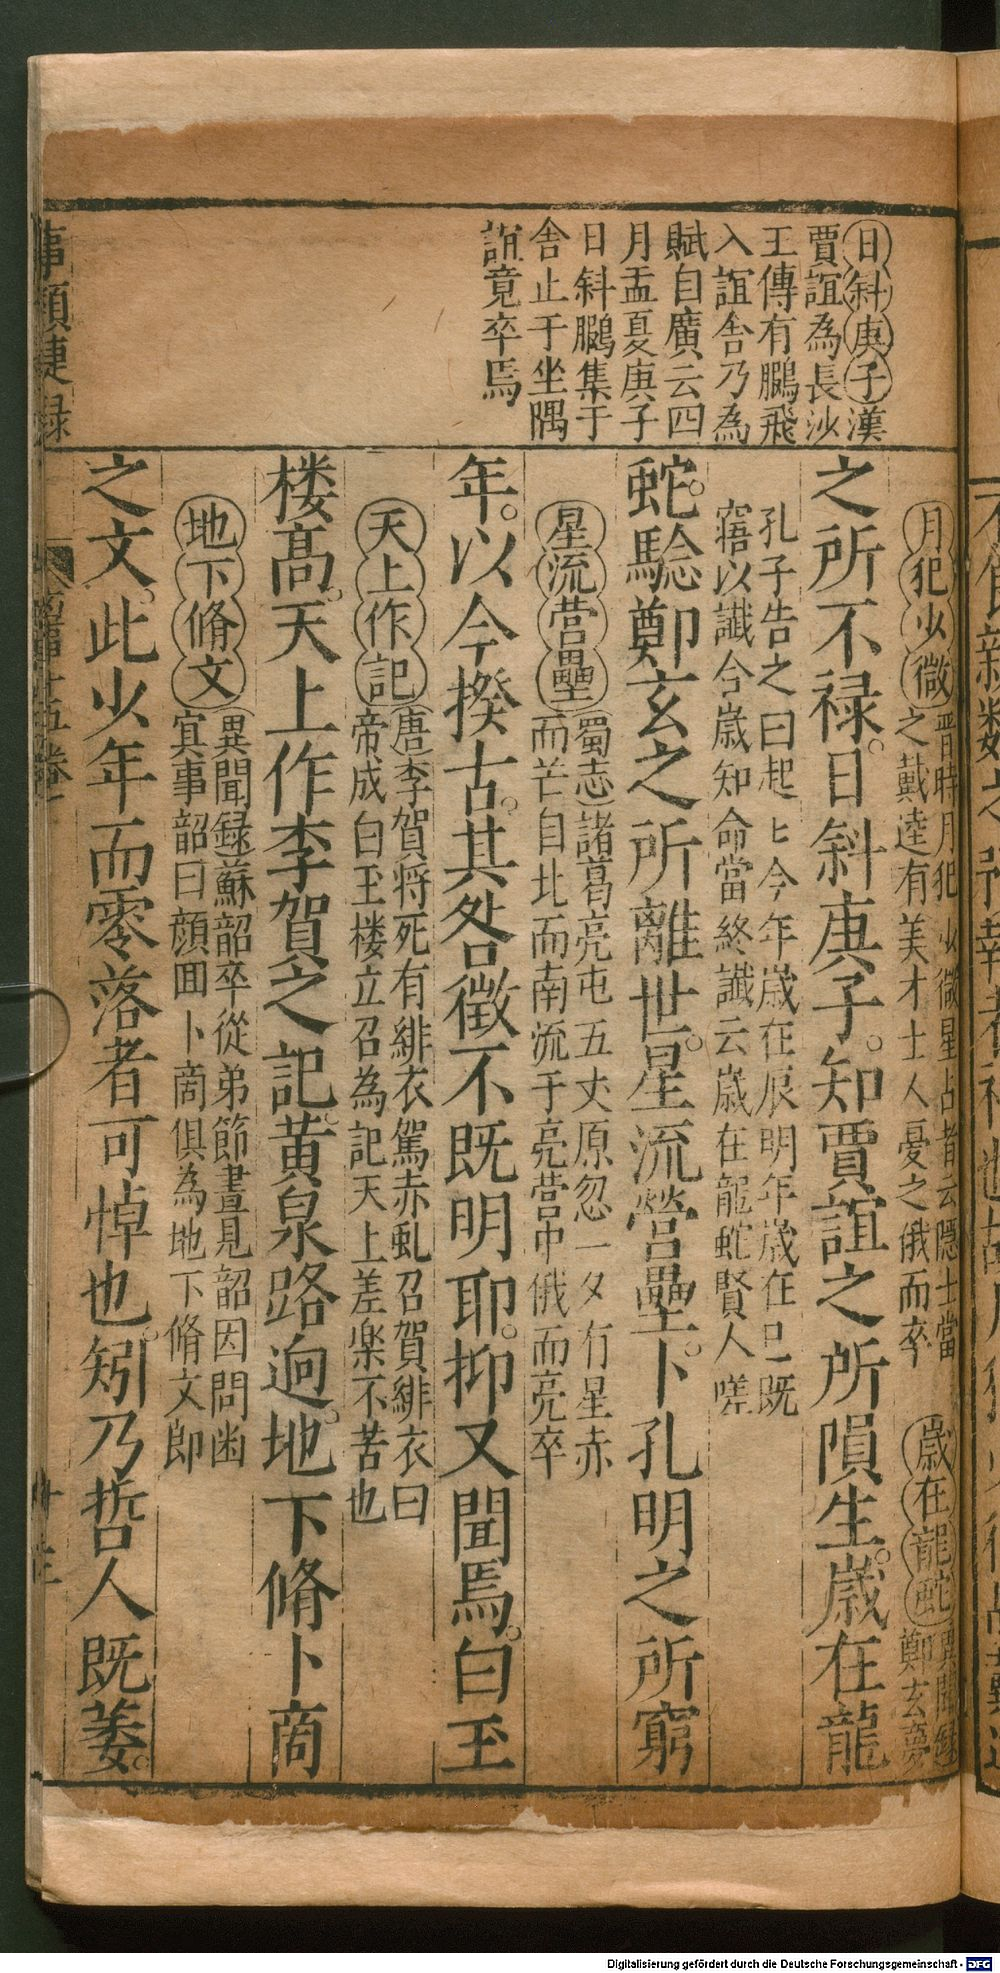 日斜庚子漢
賈誼為長沙
王傳有鵩飛
入誼舎乃為
賦自廣云四
月孟夏庚子
日斜鵩集于
舎止于坐隅
誼竟卒焉
月犯少微
晋時月犯少微星占者云隠士當
之戴逵有美才士人憂之俄而卒
歳在龍蛇
異聞録
鄭玄夢
之所不禄。日斜庚子。知賈誼之所隕生。歳在龍
孔子告之曰起七今年歳在辰明年歳在巳既
寤以讖今歳知命當終讖云歳在龍蛇賢人嗟
蛇。驗鄭玄之所離世。星流營壘。卜孔明之所窮
星流营壘
(蜀志)諸葛亮屯五丈原忽一夕有星赤
而芒自北而南流于亮营中俄而亮卒
年。以今揆古。其咎徴不既明耶。抑又聞焉。白玉
天上作記
(唐)李賀将死有緋衣駕赤虬召賀緋衣曰
帝成白玉楼立召為記天上差楽不苦也
楼髙。天上作李賀之記。黄泉路逈。地下脩卜商
地下脩文
(異聞録)蘇韶卒從弟節晝見韶因問幽
冥事韶曰顔囬卜商俱為地下脩文郎
之文。此少年而零落者可悼也。矧乃哲人既萎。
事類捷録
十五巻
Digitalisierung gefördert durch die Deutsche Forschungsgemeinschaft - DFG